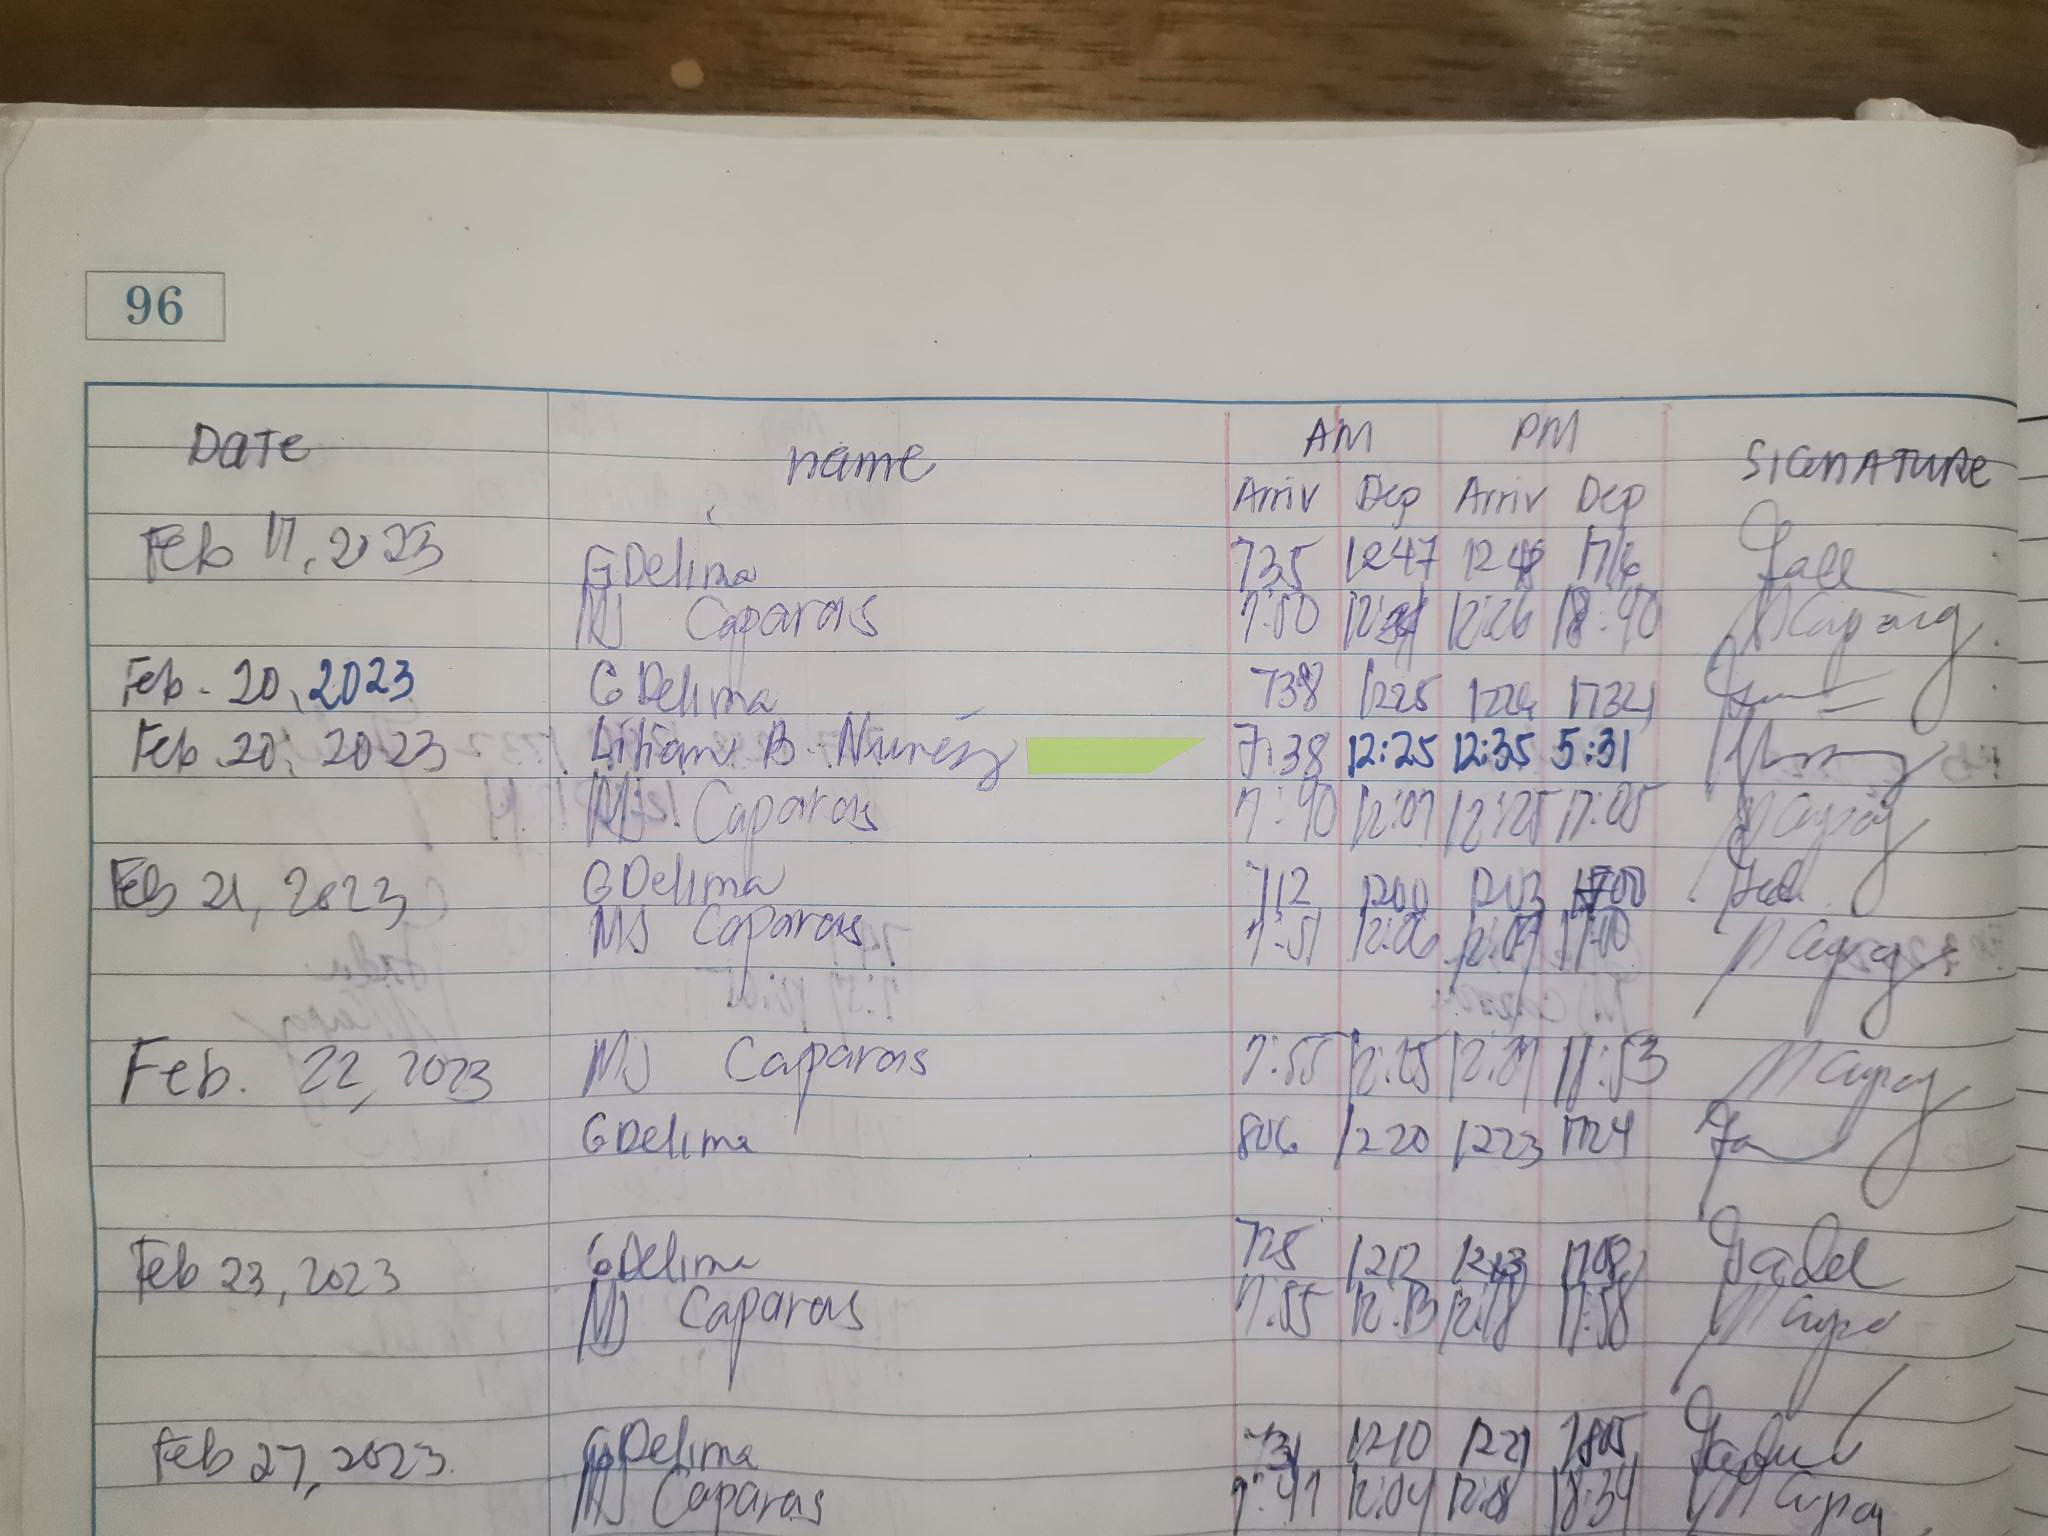 96
Date name AM PM SIGNATURE
Arriv Dep Arriv Dep
Feb 17, 2023 G Delima 735 1247 1248 1716
MJ Caparas 7:50 12:26 18:40
Feb. 20, 2023 G Delima 738 1225 1226 1732
Feb. 20, 2023 Lilian B. Nunez 7:38 12:25 12:35 5:31
MJ Caparas 7:40 12:07 12:25 17:05
Feb 21, 2023 G Delima 712 1200 1203 1700
MJ Caparas 7:51 12:06 12:07 17:00
Feb. 22, 2023 MJ Caparas 7:55 12:05 12:07 17:53
G Delima 806 1220 1223 1724
Feb 23, 2023 G Delima 725 1212 1213 1708
MJ Caparas 7:55 12:13 12:18 17:58
Feb 27, 2023 G Delima 731 1210 1221 1805
MJ Caparas 7:47 12:04 12:08 18:34